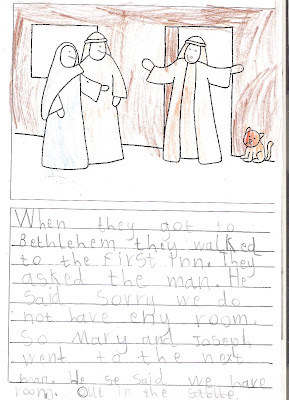 When they got to
Bethlehem they walked
to the first Inn. They
asked the man. He
said Sorry we do
not have eny room.
So Mary and Joseph
went to the next
man. He se said we have
room. Out in the